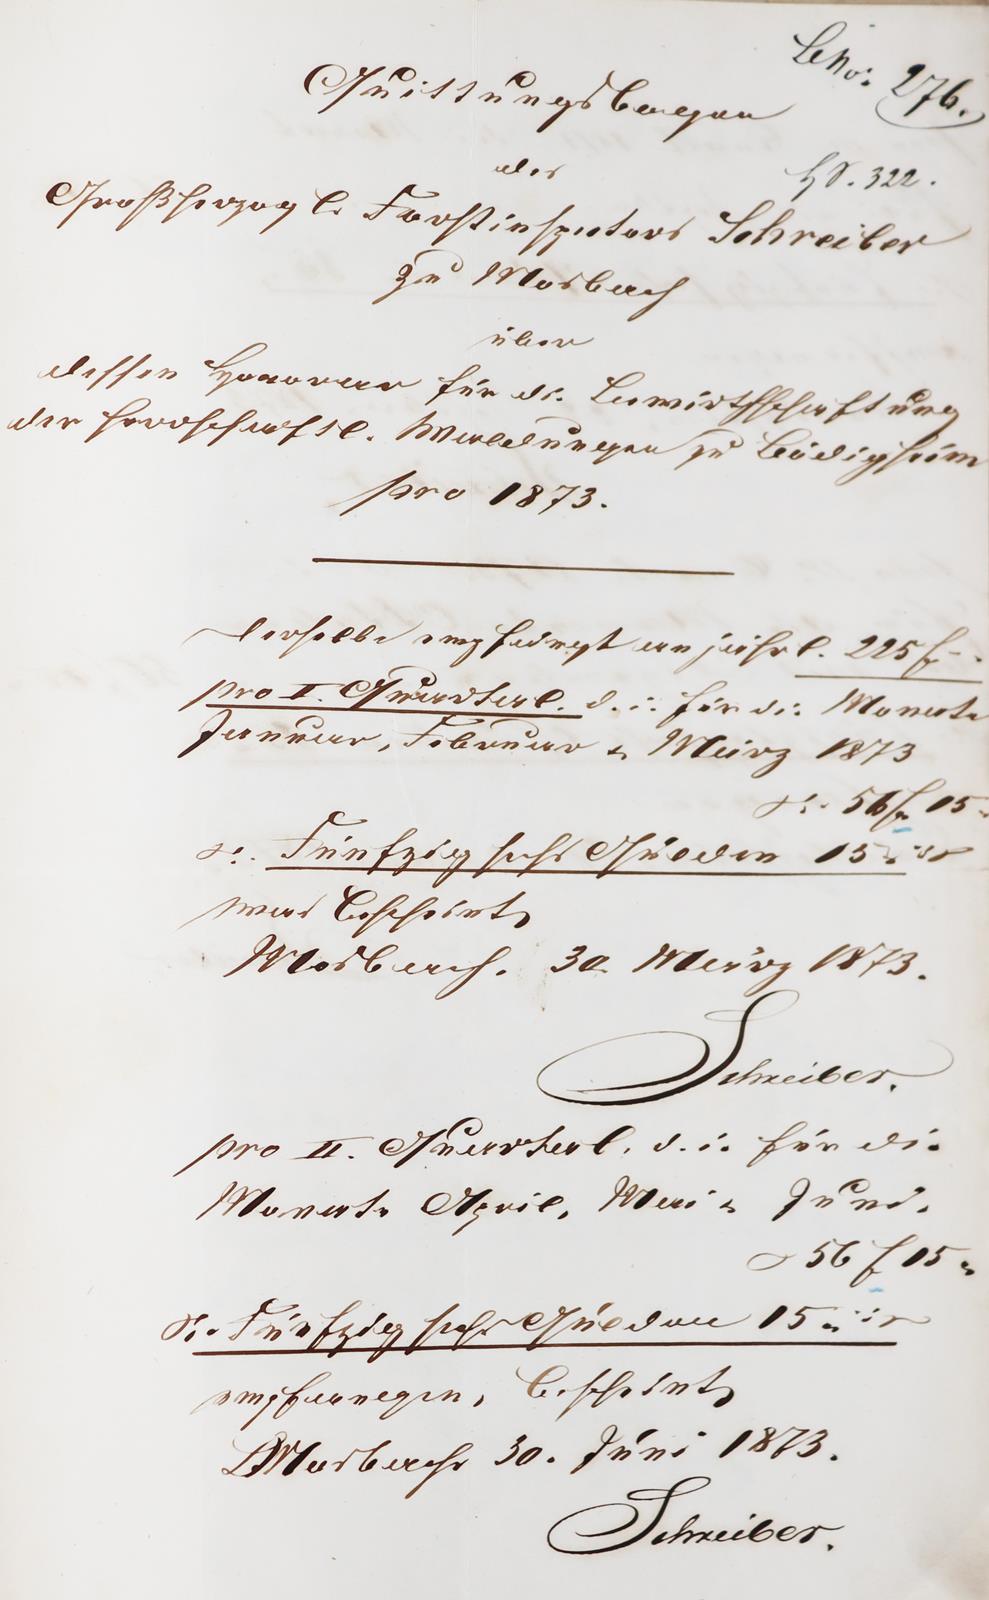 Quittungsbogen
LNo: 276.
des
HS. 322.
Großherzogl. Forstinspectors Schreiber
zu Mosbach
über
dessen Honorar für die Bewirthschaftung
der herrschaftl. Waldungen zu Bödigheim
pro 1873.
Derselbe empfängt an jährl. 225 f
pro I. Quartal. d. i. für die Monate
Januar, Februar & März 1873
56 f 15
Fünfzig sechs Gulden 15 xr
was bescheint,
Mosbach. 30 März 1873.
Schreiber.
pro II. Quartal. d. i. für die
Monate April, Mai & Juni.
56 f 15
Fünfzig sechs Gulden 15 xr
empfangen, bescheint,
Mosbach 30. Juni 1873.
Schreiber.